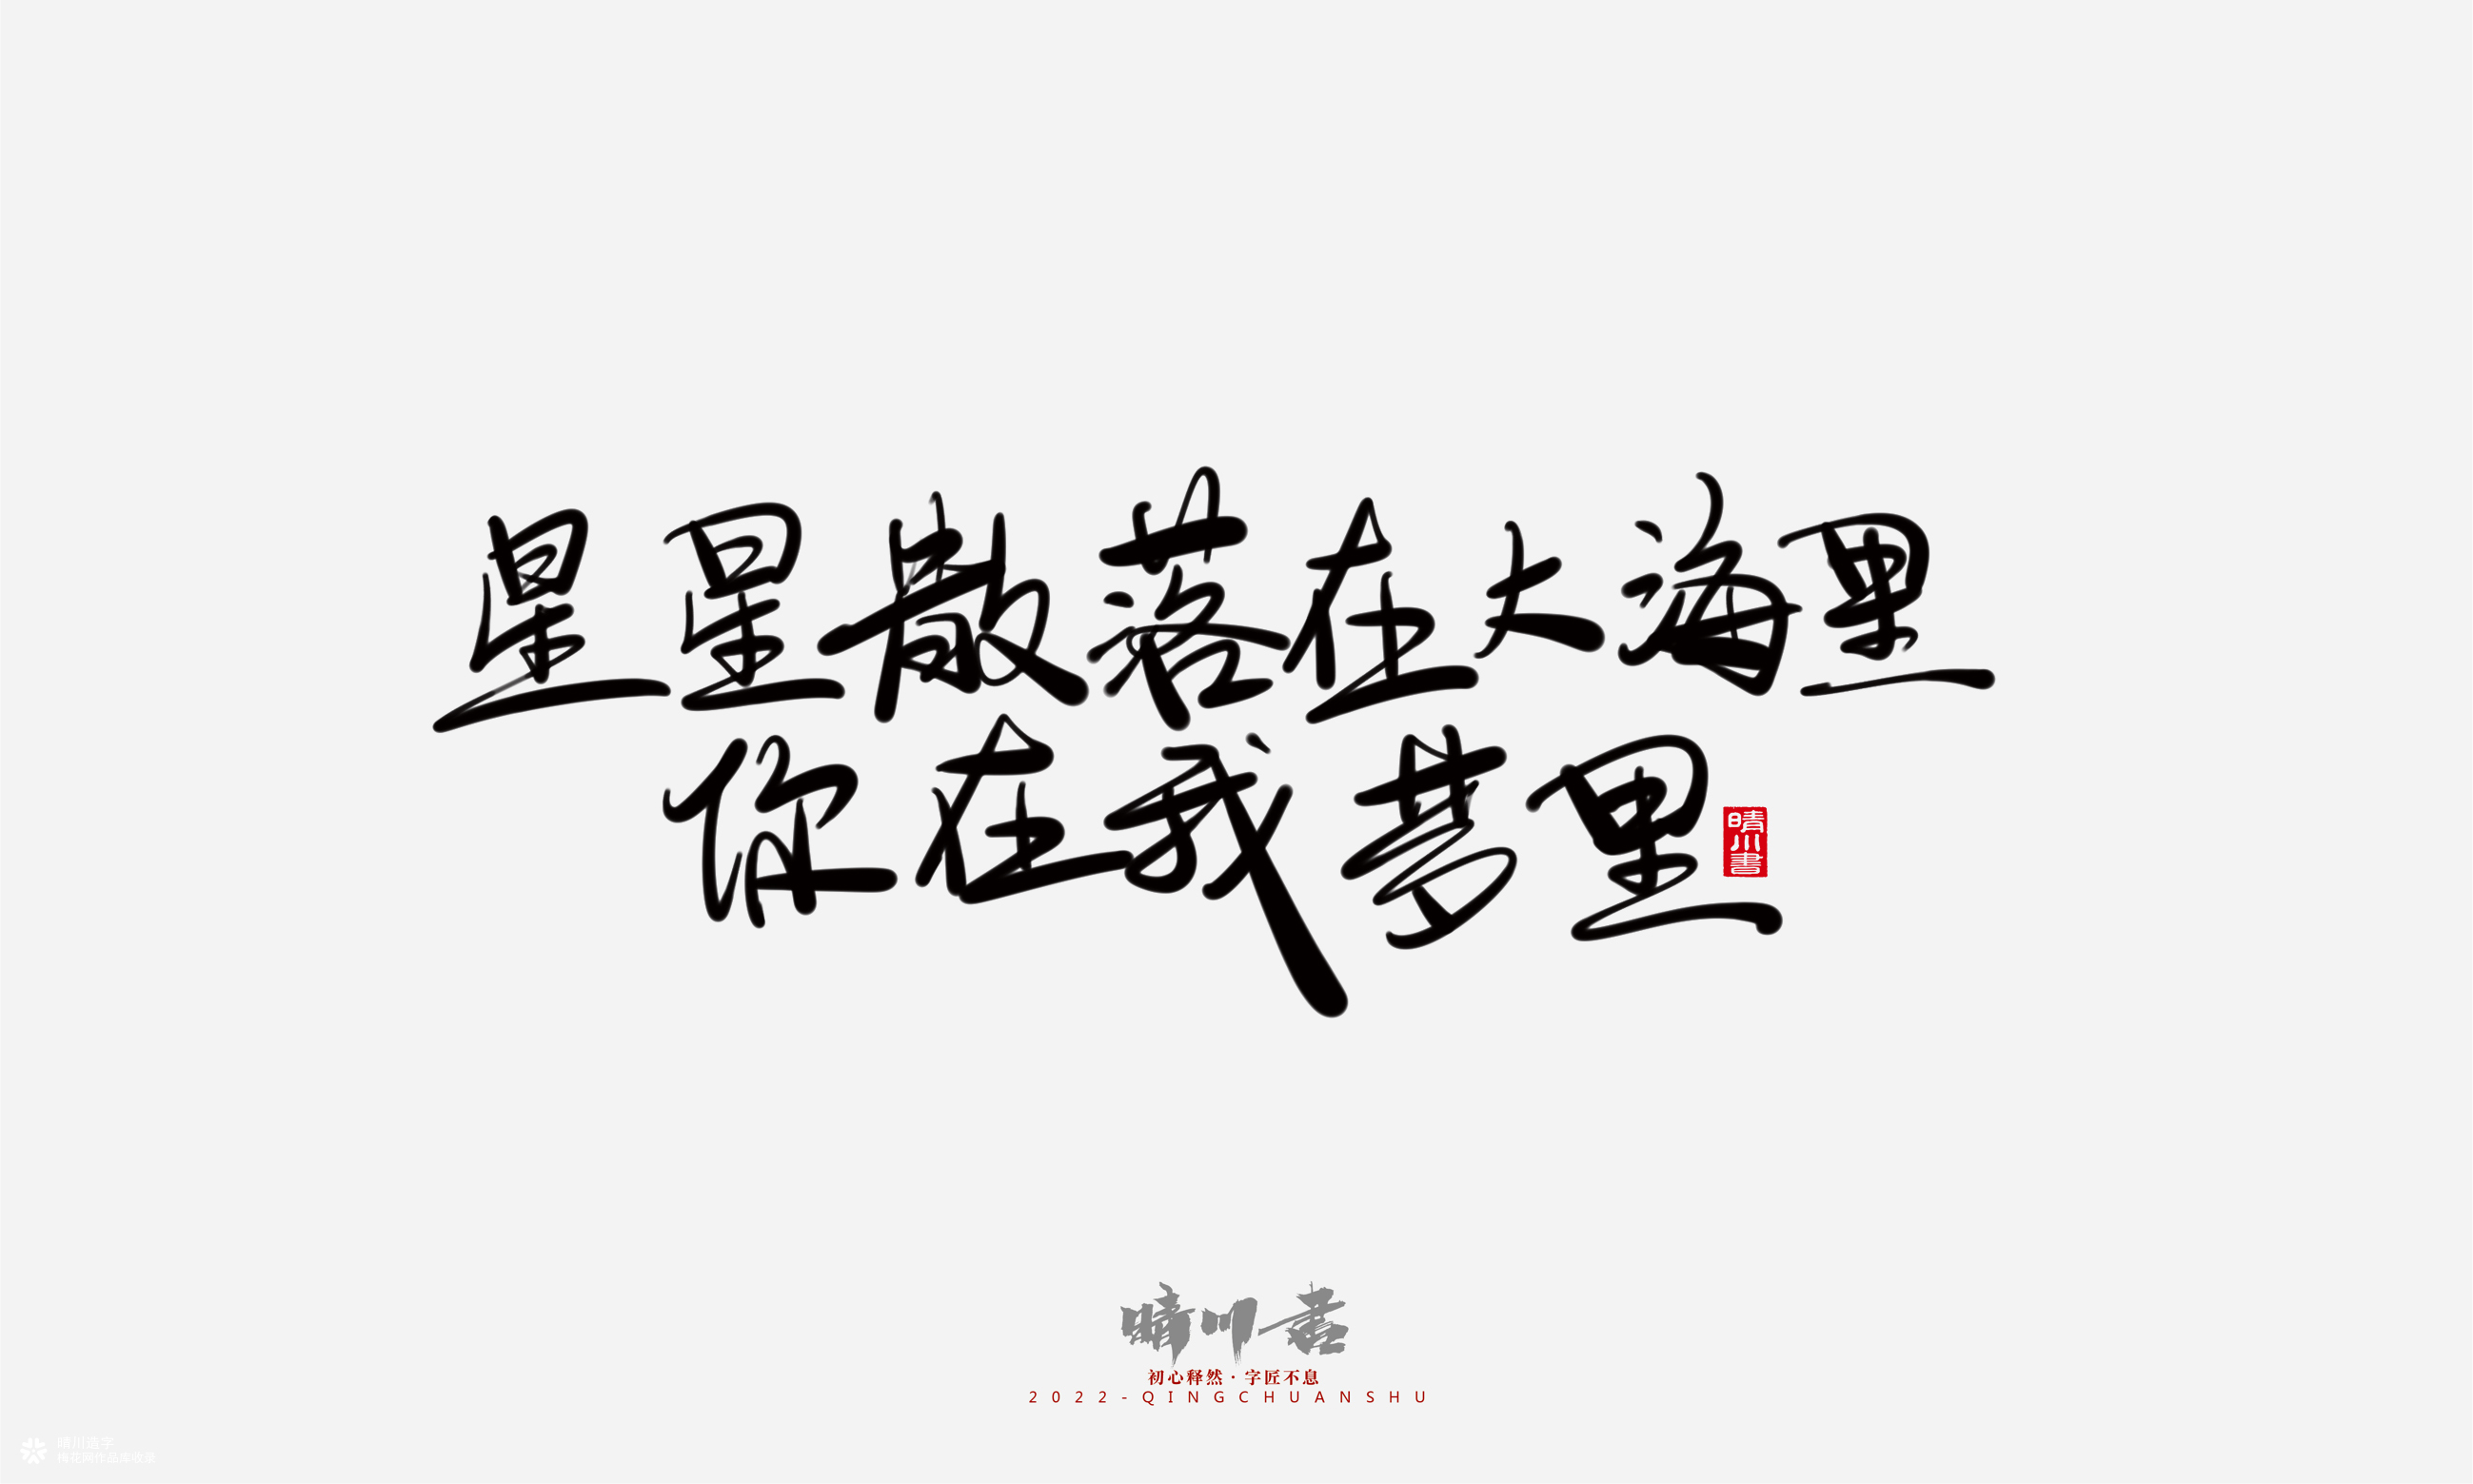 星星散落在大海里
你在我梦里
晴川書
晴川書
初心释然·字匠不息
2022-QINGCHUANSHU
晴川造字
梅花网作品库收录